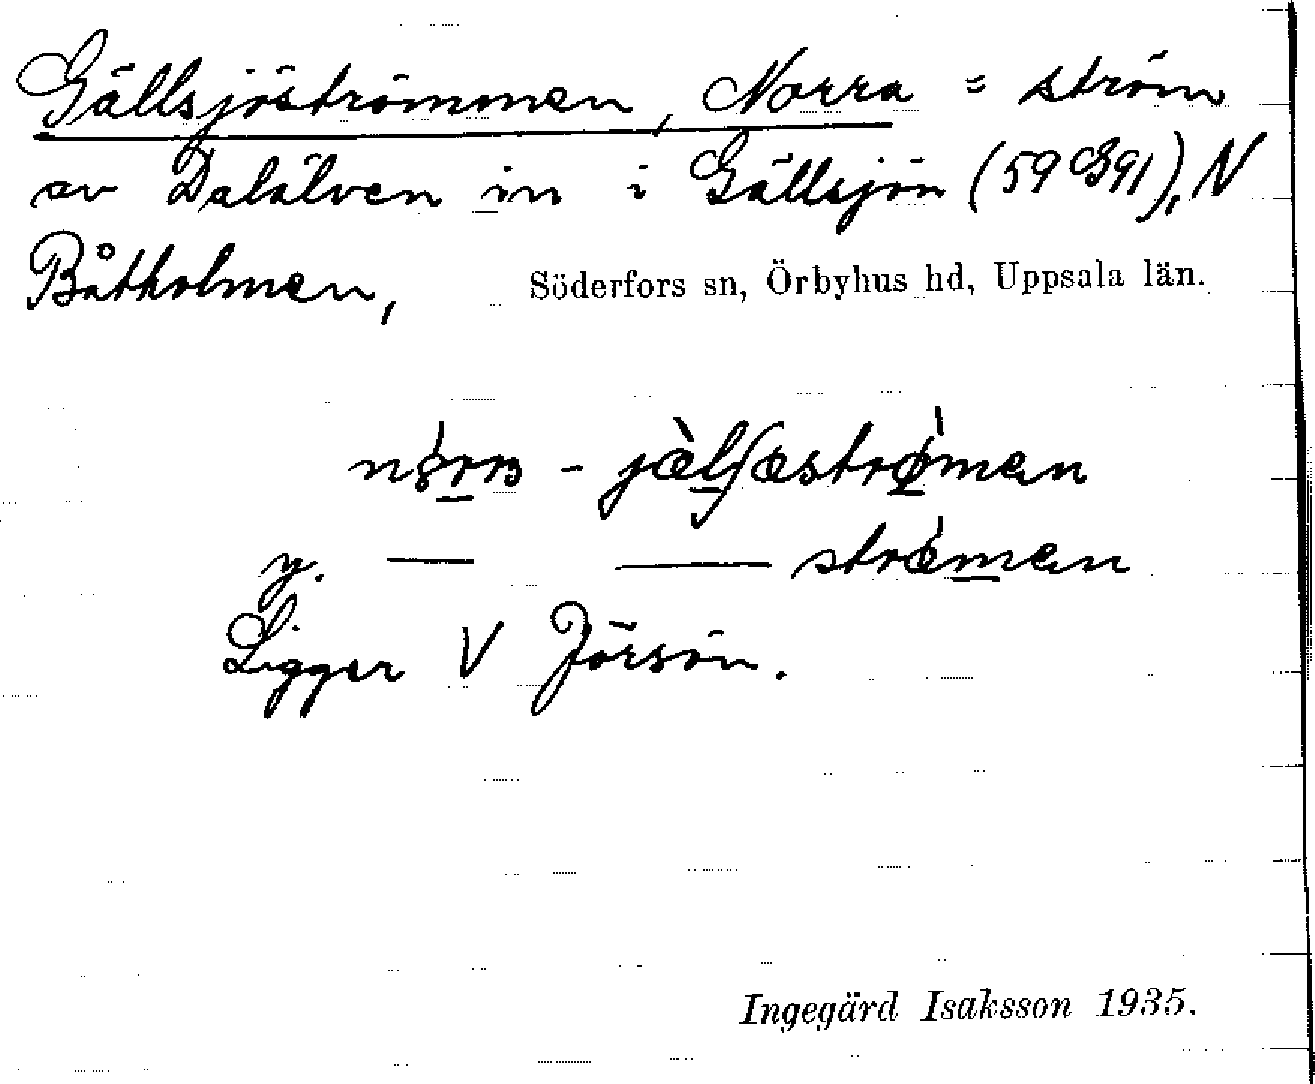 Gällsjöströmmen, Norra = ström
av Dalälven in i Gällsjön (59 B91), N
Båtholmen, Söderfors sn, Örbyhus hd, Uppsala län.
y. — — strömen
Ligger V Jörsön.
Ingegärd Isaksson 1935.